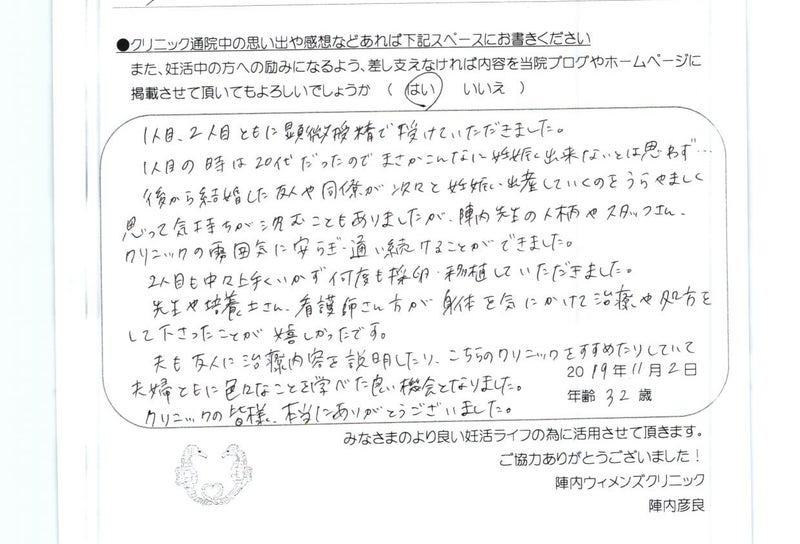 ●クリニック通院中の思い出や感想などあれば下記スペースにお書きください
また、妊活中の方への励みになるよう、差し支えなければ内容を当院ブログやホームページに
掲載させて頂いてもよろしいでしょうか （ はい いいえ ）
1人目、2人目ともに顕微授精で授けていただきました。
1人目の時は20代だったのでまさかこんなに妊娠出来ないとは思わず…
後から結婚した友人や同僚が次々と妊娠し出産していくのをうらやましく
思って気持ちが沈むこともありましたが、陣内先生の人柄やスタッフさん、
クリニックの雰囲気に安らぎ通い続けることができました。
2人目も中々上手くいかず何度も採卵・移植していただきました。
先生や培養士さん、看護師さん方が身体を気にかけて治療や処方を
して下さったことが嬉しかったです。
夫も友人に治療内容を説明したり、こちらのクリニックをすすめたりしていて
夫婦ともに色々なことを学べた良い機会となりました。
クリニックの皆様、本当にありがとうございました。
2019年11月2日
年齢 32 歳
みなさまのより良い妊活ライフの為に活用させて頂きます。
ご協力ありがとうございました！
陣内ウィメンズクリニック
陣内彦良